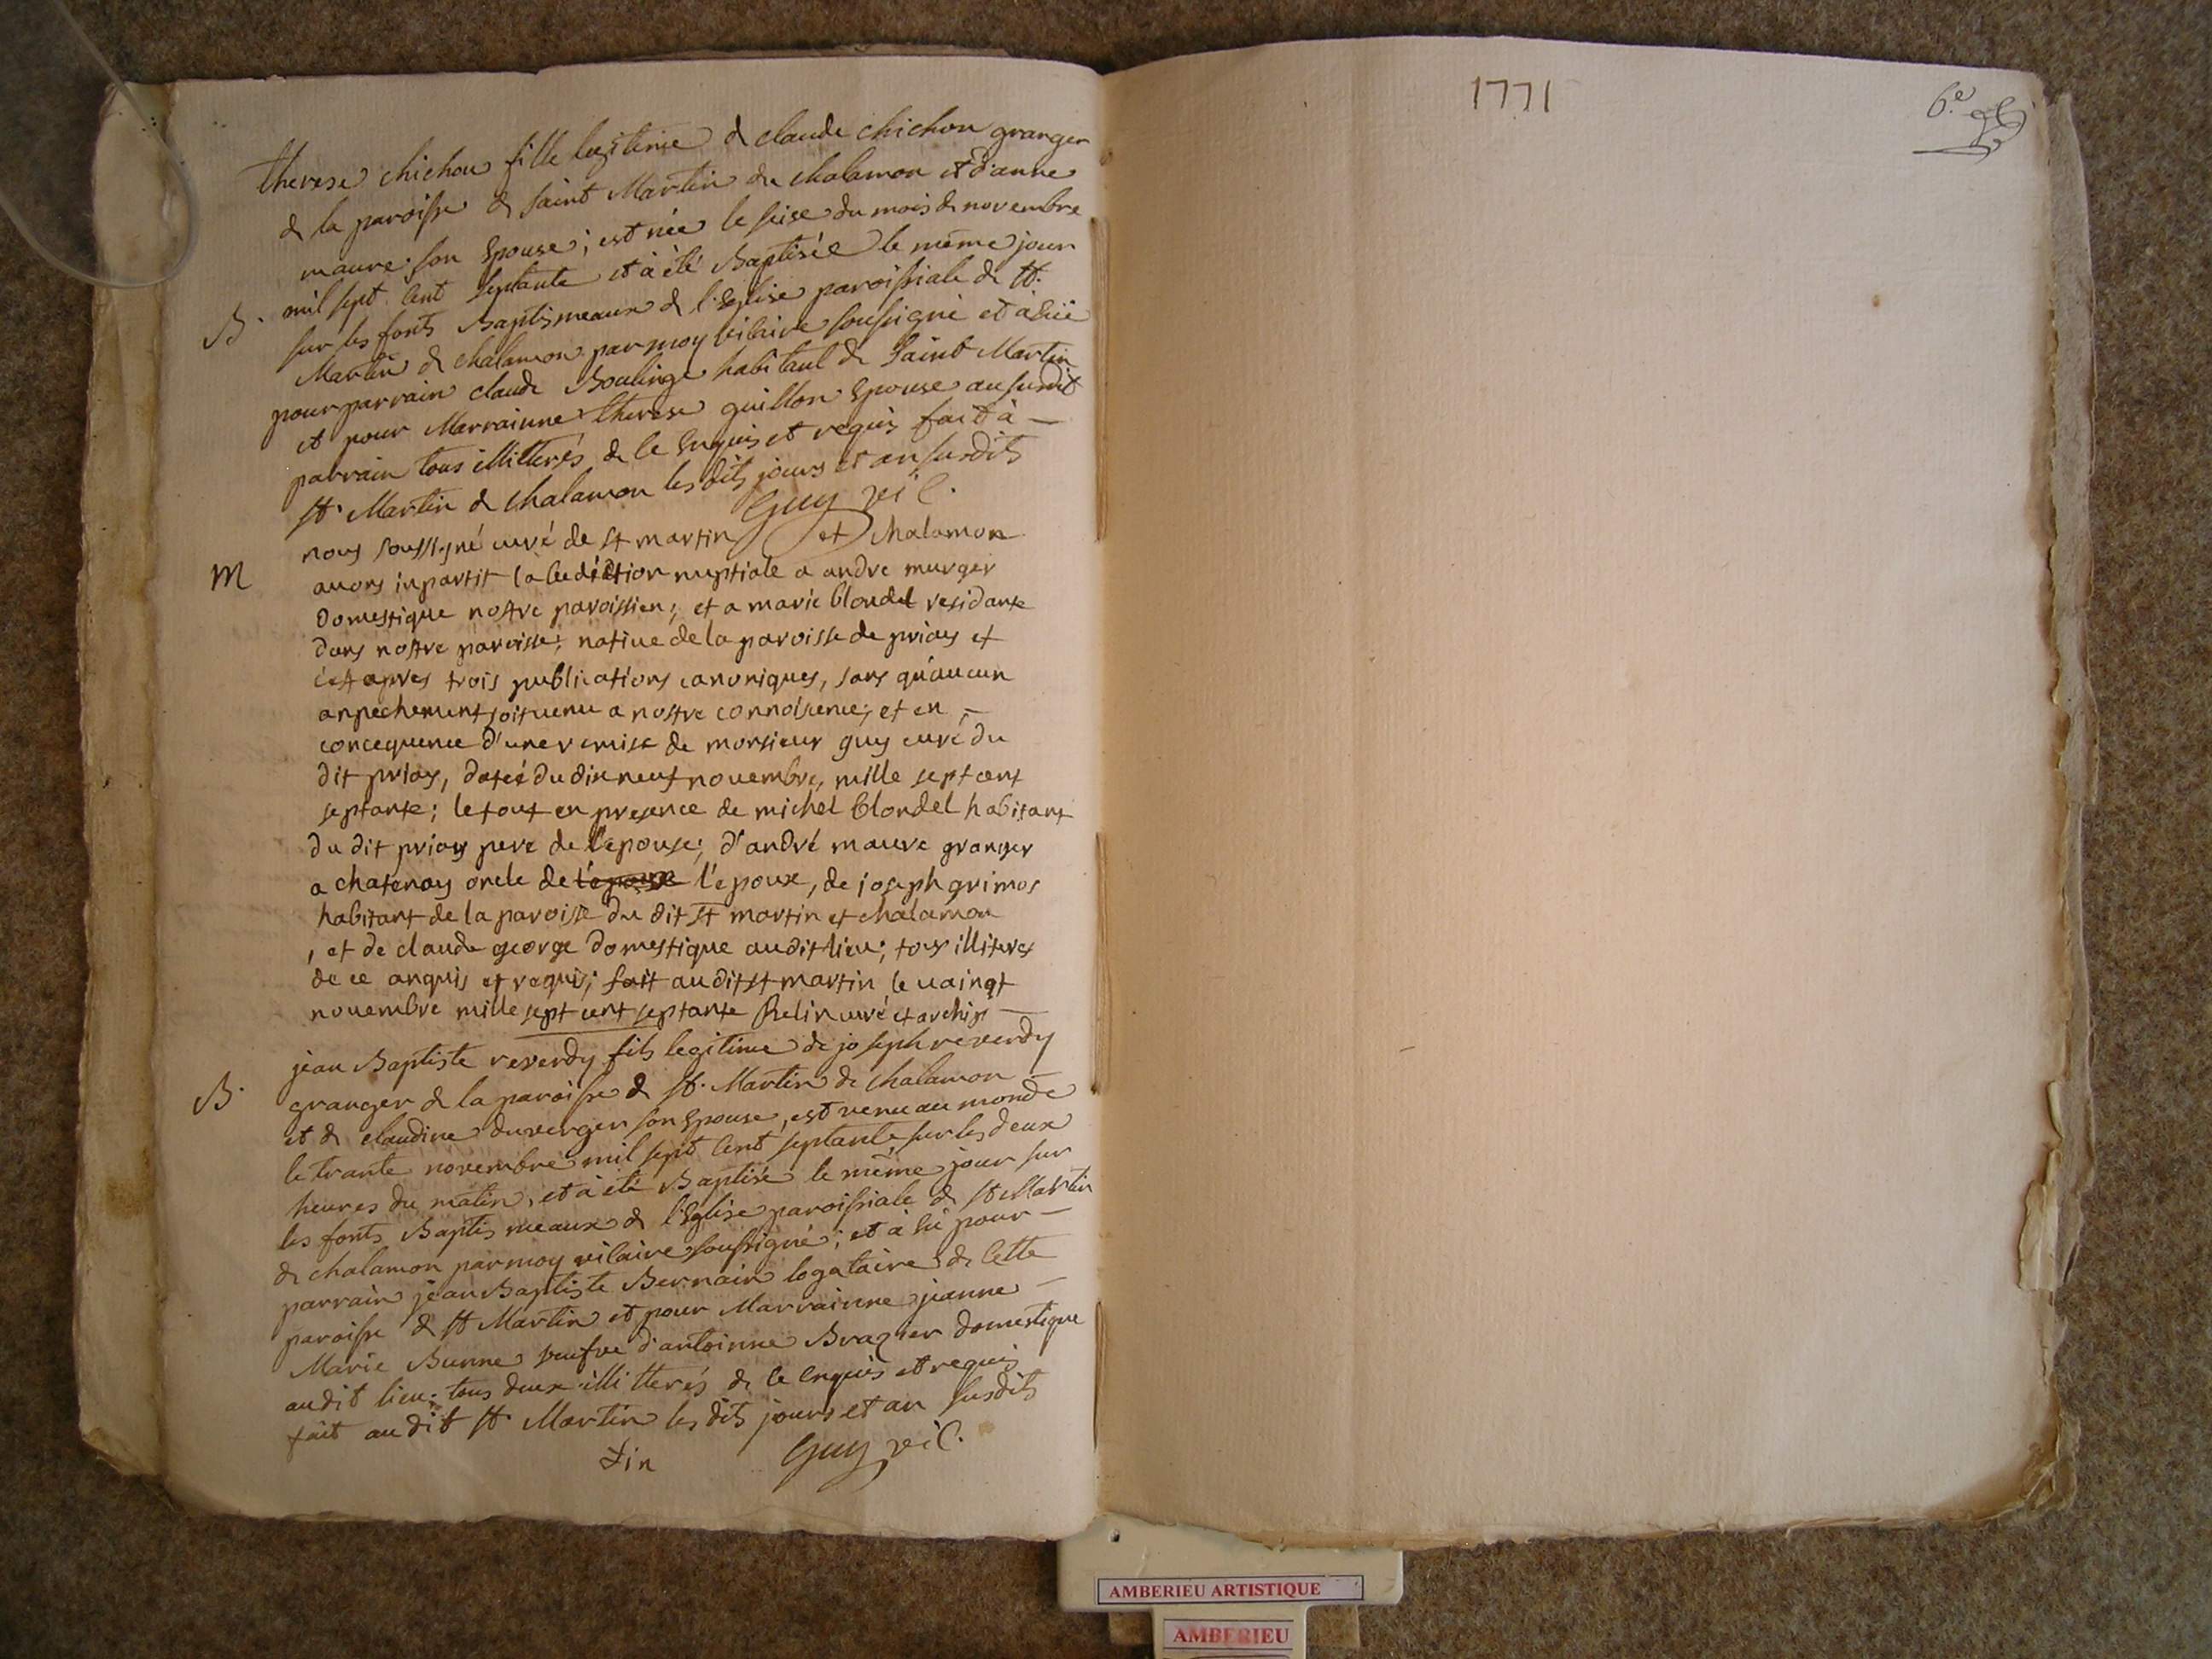 therese chichon fille legitime de claude chichon granger
de la paroisse de saint Martin de chalamon et d'anne
maure son Epouse; est née le seise du mois de novembre
mil sept cent septante et à été Baptisée le même jour
B. sur les fonts Baptismeaux de l'Eglise paroissiale de st.
Martin de chalamon par moy vicaire soussigné et à eü
pour parrain claude Boulinge habitant de saint Martin
et pour Marrainne therese guillon Epouse au susdit
parrain tous illitterés de ce Enquis et requis fait à
st. Martin de chalamon les dits jours et an susdits
Guy vic.
nous soussigné curé de st martin et chalamon
M avons inpartit la bediction nuptiale a andre murger
domestique nostre paroissien; et a marie blondel residante
dans nostre paroisse; native de la paroisse de priay et
c'est apres trois publications canoniques, sans qu'aucun
anpechement soit venu a nostre connoisence; et en
concequence d'une remise de monsieur guy curé du
dit priay, dateé du dix neuf novembre, mille sept cent
septante; le tout en presence de michel blondel habitant
du dit priay pere de l'epouse; d'andré maure granger
a chatenay oncle de l'epouse l'epoux, de joseph grimos
habitant de la paroisse du dit st martin et chalamon
, et de claude george domestique audit lieu; tous illiteres
de ce anquis et requis; fait audit st martin le vaingt
novembre mille sept cent septante Belin curé et archip
jean Baptiste reverdy fils legitime de joseph reverdy
B. granger de la paroisse de st. Martin de chalamon
et de claudine duverger son Epouse, est venu au monde
le trante novembre mil sept cent septante sur les deux
heures du matin, et à été Baptisé le même jour sur
les fonts Baptismeaux de l'Eglise paroissiale de st Martin
de chalamon par moy vicaire soussigné; et à eü pour
parrain jean Baptiste Bernain logataire de cette
paroisse de st Martin et pour Marrainne jeanne
Marie Bunne veufve d'antoinne Brazier domestique
audit lieu; tous deux illitterés de ce enquis et requis
fait audit st. Martin les dits jours et an susdits
fin Guy vic.
1771
6.e
AMBERIEU ARTISTIQUE
AMBERIEU